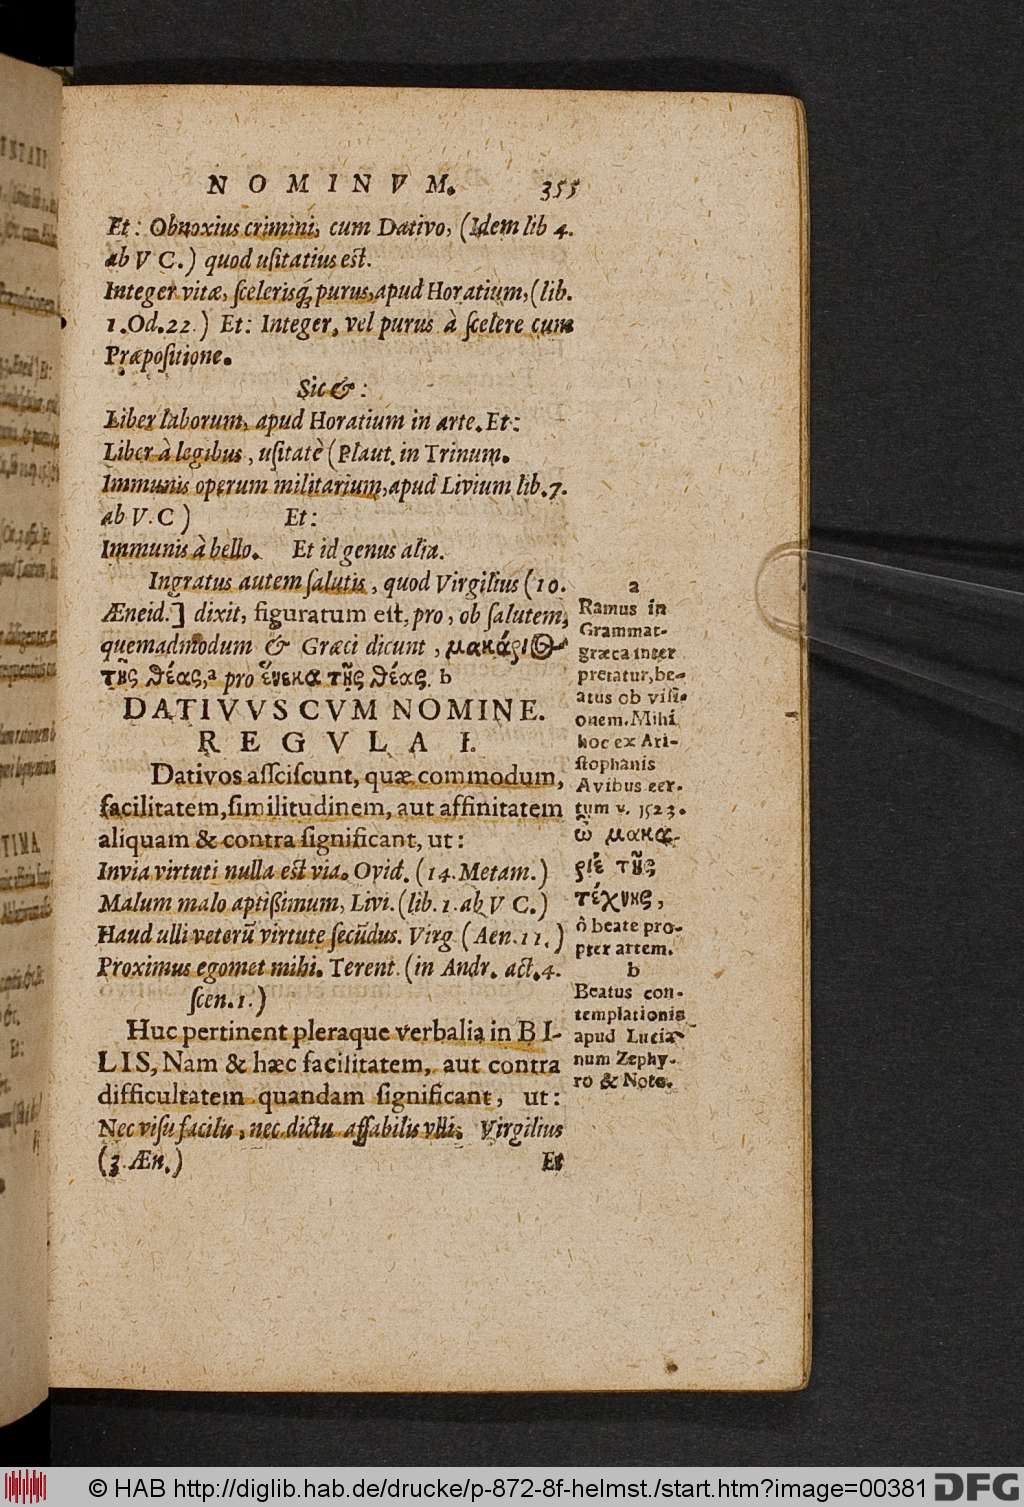 NOMINVM. 355
Et: Obnoxius crimini, cum Dativo, (Idem lib 4.
ab V C.) quod uſitatius eſt.
Integer vitæ, ſcelerisq́; purus, apud Horatium, (lib.
1. Od. 22.) Et: Integer, vel purus à ſcelere cum
Præpoſitione.
Sic &:
Liber laborum, apud Horatium in arte. Et:
Liber à legibus, uſitatè (Plaut. in Trinum.
Immunis operum militarium, apud Livium lib. 7.
ab V. C) Et:
Immunis à bello. Et id genus alia.
Ingratus autem ſalutis, quod Virgilius (10.
Æneid.] dixit, figuratum eſt, pro, ob ſalutem,
quemadmodum & Græci dicunt, μακάριος
τῆς θέας, a pro ἕνεκα τῆς θέας. b
DATIVVS CVM NOMINE.
REGVLA I.
Dativos aſſciſcunt, quæ commodum,
facilitatem, ſimilitudinem, aut affinitatem
aliquam & contra ſignificant, ut:
Invia virtuti nulla eſt via. Ovid. (14. Metam.)
Malum malo aptißimum, Livi. (lib. 1. ab V C.)
Haud ulli veterũ virtute ſecũdus. Virg (Aen. 11.)
Proximus egomet mihi. Terent. (in Andr. act. 4.
ſcen. 1.)
Huc pertinent pleraque verbalia in BI-
LIS, Nam & hæc facilitatem, aut contra
difficultatem quandam ſignificant, ut:
Nec viſu facilis, nec dictu affabilis vlli, Virgilius
(3. Æn.) Et
a
Ramus in
Grammat-
græca inter
pretatur, be-
atus ob viſi-
onem. Mihi
hoc ex Ari-
ſtophanis
Avibus cer-
tum v. 1523.
ὦ μακά-
ριε τῆς
τέχνης,
ô beate pro-
pter artem.
b
Beatus con-
templationis
apud Lucia-
num Zephy-
ro & Noto.
© HAB http://diglib.hab.de/drucke/p-872-8f-helmst./start.htm?image=00381
DFG